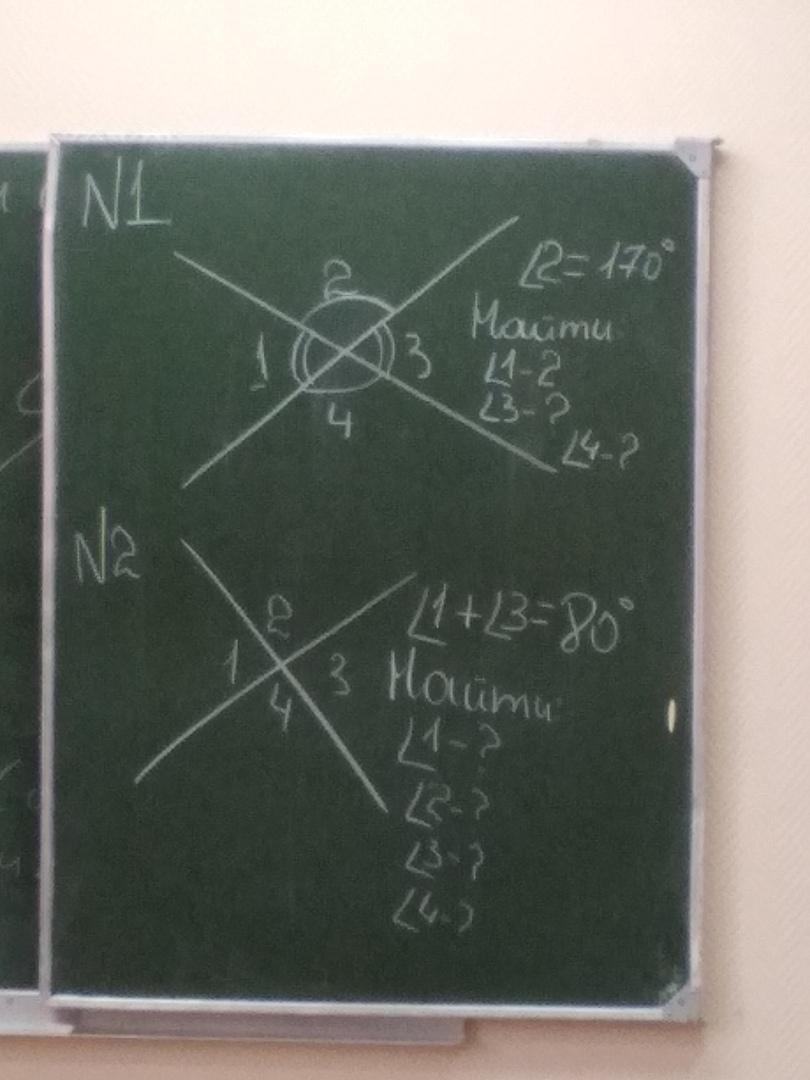 N1
2
1
3
4
∠2=170°
Найти
∠1-?
∠3-?
∠4-?
N2
2
1
3
4
∠1+∠3=80°
Найти
∠1-?
∠2-?
∠3-?
∠4-?